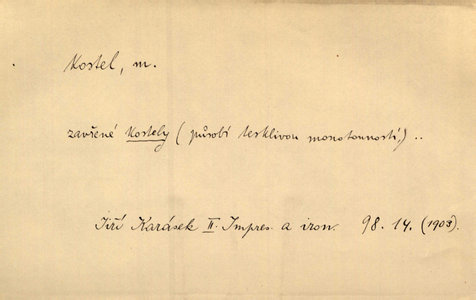 Kostel, m.
zavřené kostely (působí teskl­ivou monotonností.) ..
Jiří Karásek II. Impres. a iron. 98. 14. (1903)